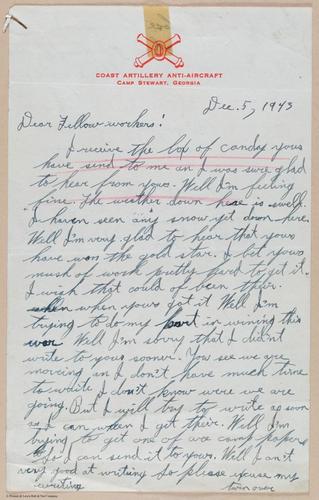 COAST ARTILLERY ANTI-AIRCRAFT
CAMP STEWART, GEORGIA
Dec. 5, 1943
Dear Fellow workers:
I receive the box of candy yous
have send to me an I was sure glad
to hear from yous. Well I'm feeling
fine. The weather down here is swell.
I haven seen any snow yet down here.
Well I'm very glad to hear that yous
have won the gold star. I bet yous
mush of work pretty hard to get it.
I wish that could of been their
when yous got it Well I'm
trying to do my part in wining this
war Well I'm sorry that I didn't
write to yous sooner. You see we are
moving an I don't have much time
to write I don't know were we are
going. But I will try to write as soon
as I can when I get their. Well I'm
trying to get one of our camp papers
so I can send it to yours. Well I can't
very good at writing so please excuse my
writing
turn over